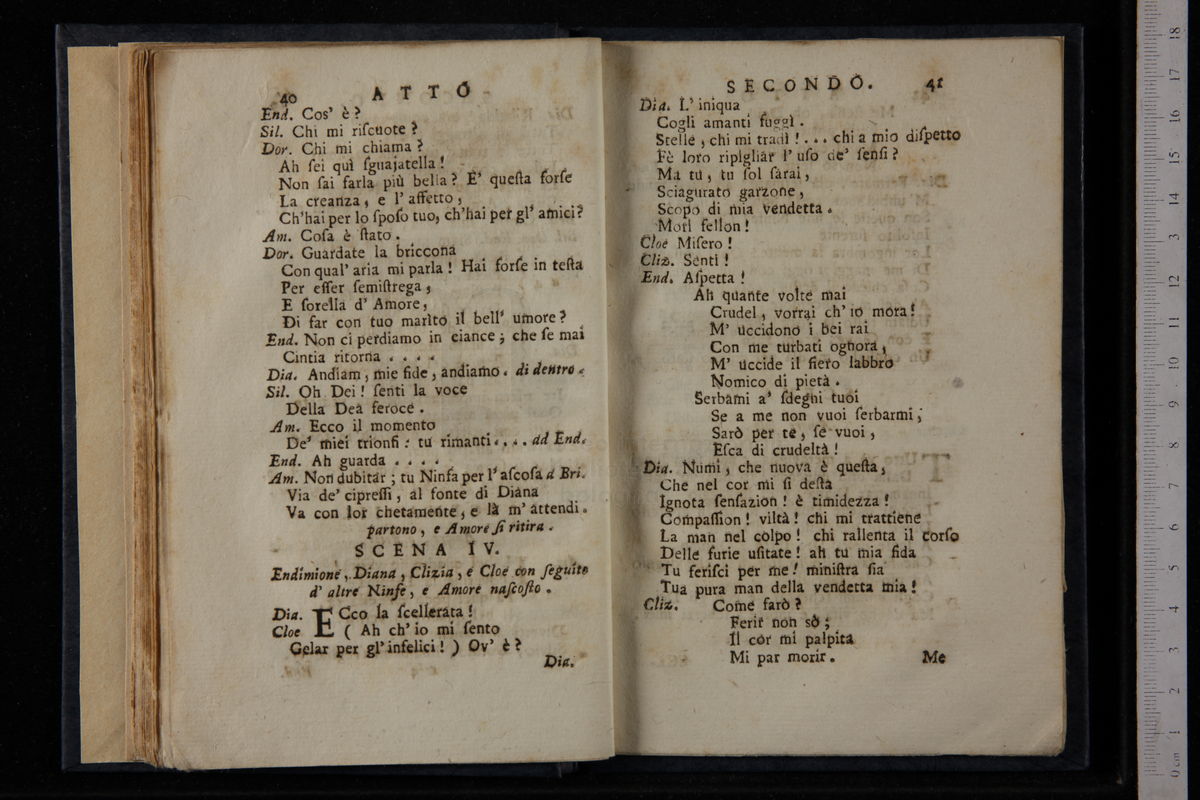 40 ATTO
End. Cos' è?
Sil. Chi mi riſcuote?
Dor. Chi mi chiama?
Ah ſei quì ſguajatella!
Non ſai farla più bella? E' queſta forſe
La creanza, e l' affetto,
Ch'hai per lo ſpoſo tuo, ch'hai per gl' amici?
Am. Coſa è ſtato.
Dor. Guardate la briccona
Con qual' aria mi parla! Hai forſe in teſta
Per eſſer ſemiſtrega,
E ſorella d' Amore,
Di far con tuo marito il bell' umore?
End. Non ci perdiamo in ciance; che ſe mai
Cintia ritorna . . . .
Dia. Andiam, mie fide, andiamo. di dentro.
Sil. Oh Dei! ſenti la voce
Della Dea feroce.
Am. Ecco il momento
De' miei trionfi: tu rimanti. . . . ad End.
End. Ah guarda . . . .
Am. Non dubitar; tu Ninfa per l' aſcoſa a Bri.
Via de' cipreſſi, al fonte di Diana
Va con lor chetamente, e là m' attendi.
partono, e Amore ſi ritira.
SCENA IV.
Endimione, Diana, Clizia, e Cloe con ſeguito
d' altre Ninfe, e Amore naſcoſto.
Dia. ECco la ſcellerata!
Cloe ( Ah ch' io mi ſento
Gelar per gl' infelici! ) Ov' è?
Dia.
SECONDO. 41
Dia. L' iniqua
Cogli amanti fuggì.
Stelle, chi mi tradì! . . . chi a mio diſpetto
Fè loro ripigliar l' uſo de' ſenſi?
Ma tu, tu ſol ſarai,
Sciagurato garzone,
Scopo di mia vendetta.
Mori fellon!
Cloe Miſero!
Cliz. Senti!
End. Aſpetta!
Ah quante volte mai
Crudel, vorrai ch' io mora!
M' uccidono i bei rai
Con me turbati ognora,
M' uccide il fiero labbro
Nomico di pietà.
Serbami a' ſdegni tuoi
Se a me non vuoi ſerbarmi;
Sarò per te, ſe vuoi,
Eſca di crudeltà!
Dia. Numi, che nuova è queſta,
Che nel cor mi ſi deſta
Ignota ſenſazion! è timidezza!
Compaſſion! viltà! chi mi trattiene
La man nel colpo! chi rallenta il corſo
Delle furie uſitate! ah tu mia fida
Tu feriſci per me! miniſtra ſia
Tua pura man della vendetta mia!
Cliz. Come farò?
Ferir non sò;
Il cor mi palpita
Mi par morir.
Me